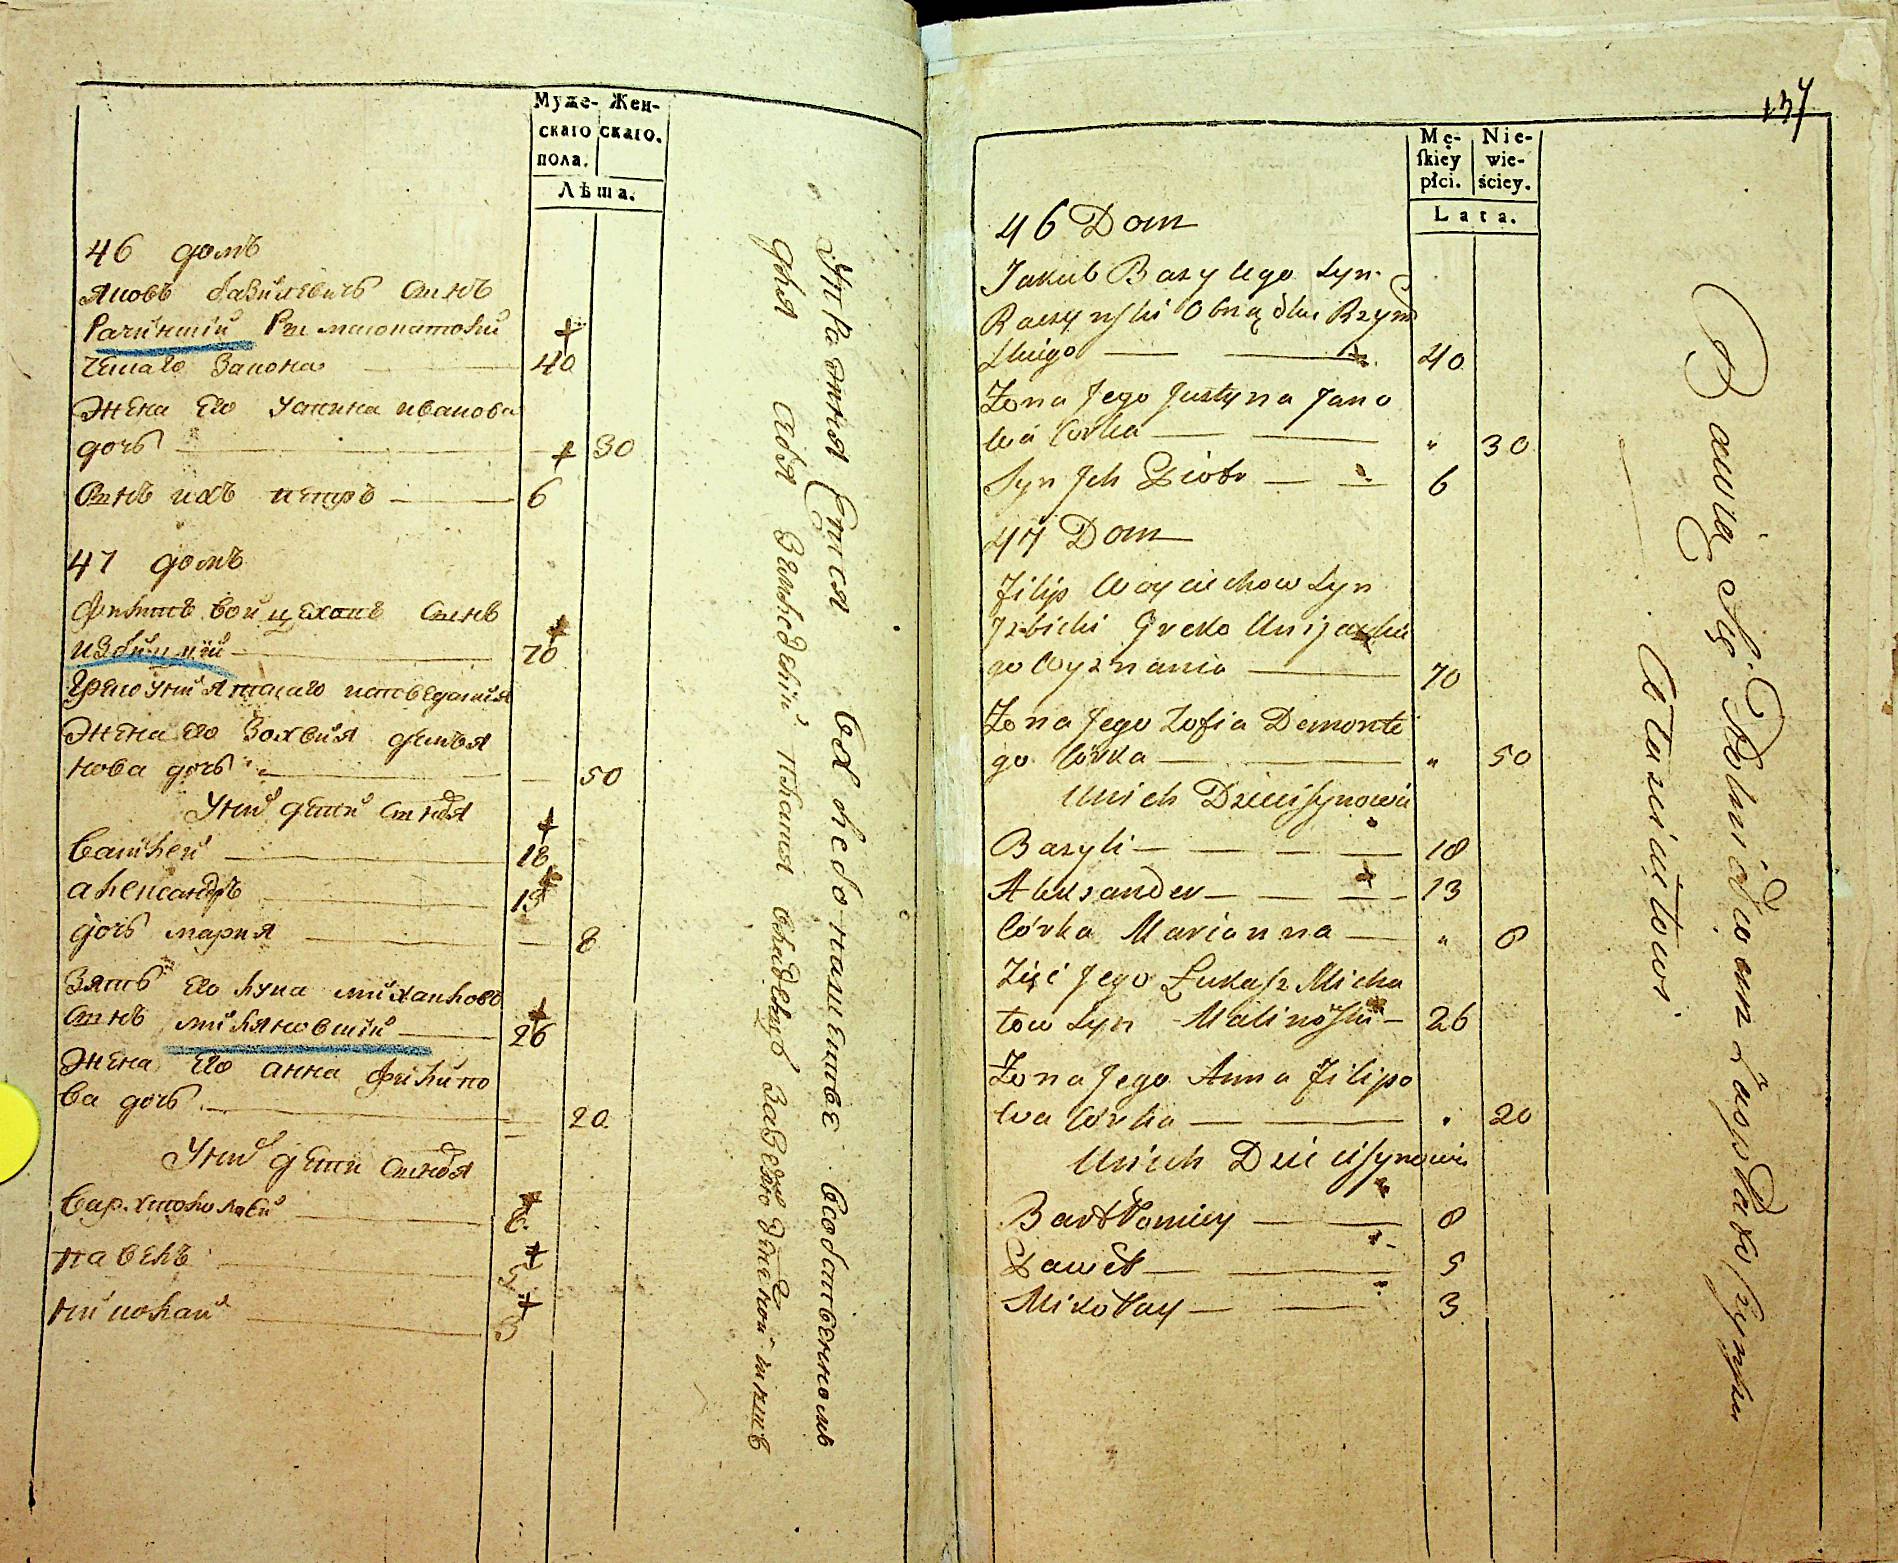 Муже- Жен-
скаго скаго.
пола.
Лѣта.
46 домъ
Яковъ базилевичъ сынъ
Рачинский Римлокатоли
ческаго Закона 40
Жена его Устина иванова
дочь 30
Сынъ ихъ петръ 6
47 домъ
Филипъ войцеховъ сынъ
избицкий 70
Грекоуниятскаго исповедания
Жена его Зофия демья
нова дочь 50
У них дети сыновья
Василей 18
александръ 13
дочь мария 8
Зять его лука михайловъ
сынъ малиновский 26
Жена его анна филипо
ва дочь 20
У них дети сыновья
варфтоломей 8
павелъ 5
николай 3
137
Mę- Nie-
ſkiey wie-
płci. ściey.
Lata.
46 Dom
Jakub Bazylego Syn
Raczynſki Obrządku Rzym
skiego 40
Żona Jego Justyna Jano
wa Córka " 30
Syn Jch Piotr 6
47 Dom
Filip Woyciechow Syn
Jzbicki Greko Uniyackie
go Wyznania 70
Żona Jego Zofia Demonte
go Córka " 50
U nich Dzieci Synowie
Bazyli 18
Alexander 13
Córka Marianna " 8
Zięć Jego Łukasz Micha
łow Syn Malinoſki 26
Żona Jego Anna Filipo
wa Córka " 20
U nich Dzieci Synowie
Bartłomiey 8
Paweł 5
Mikołay 3